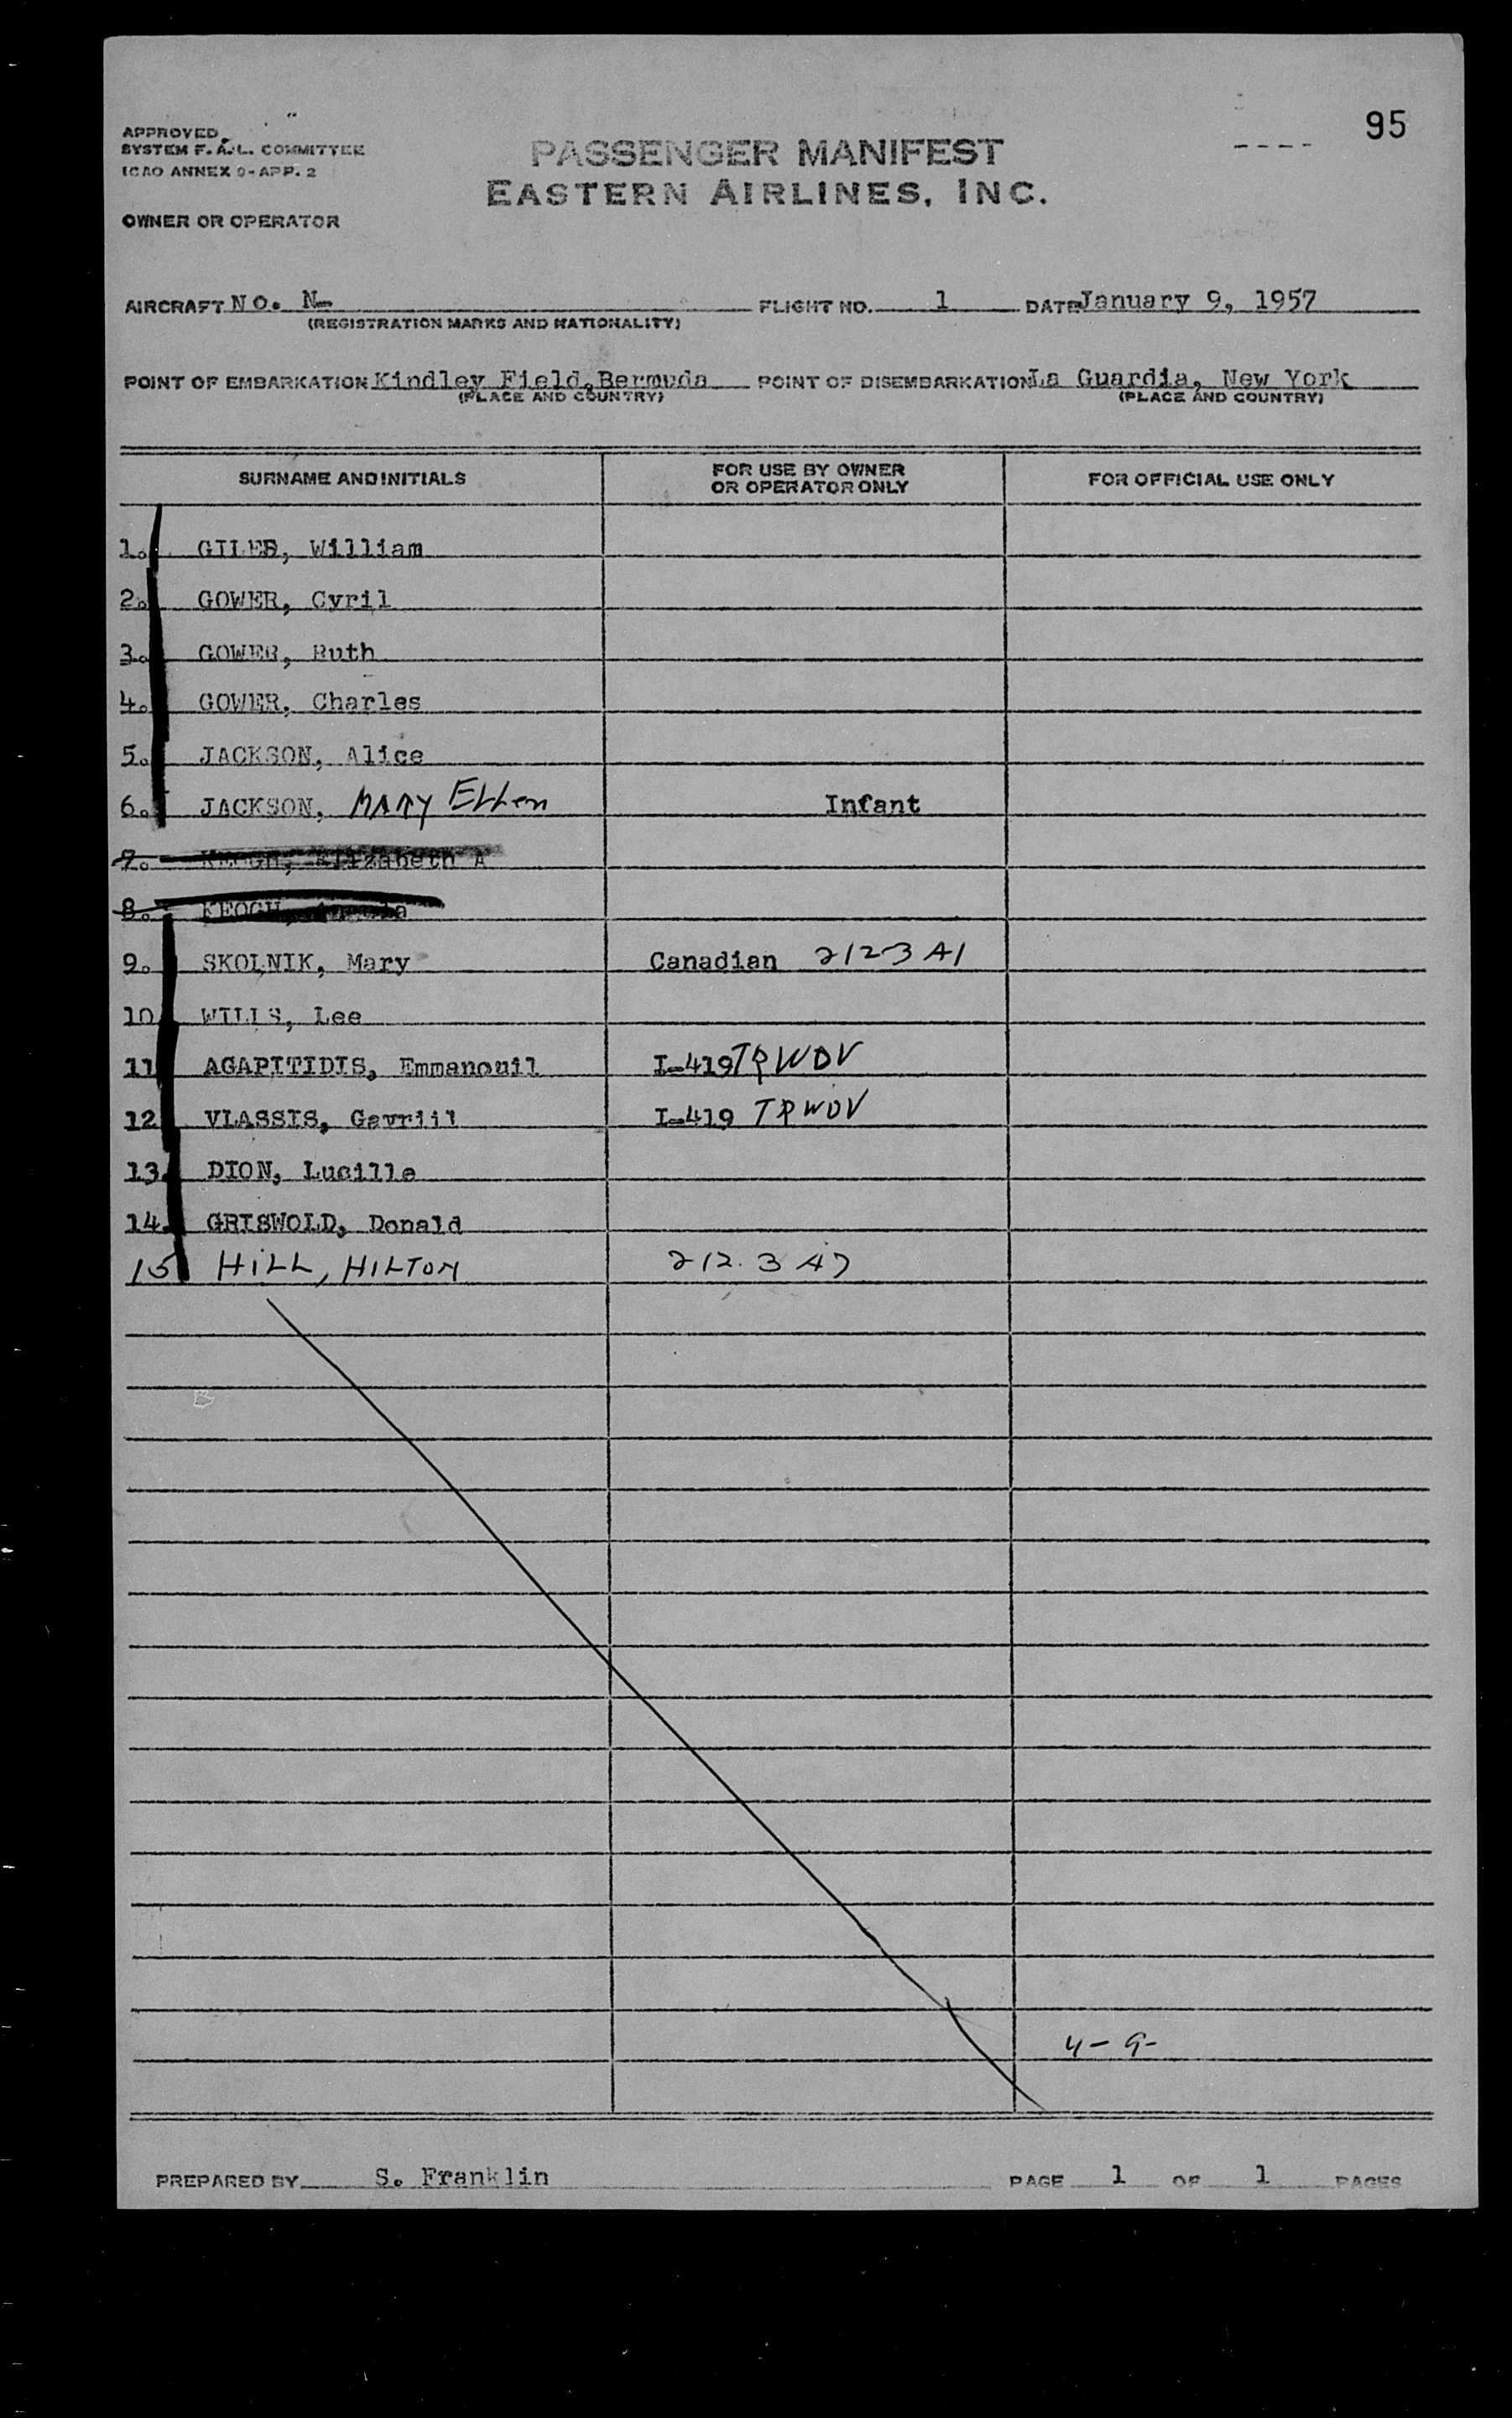 95
APPROVED
SYSTEM F. A. L. COMMITTEE
ICAO ANNEX 9-APP. 2
PASSENGER MANIFEST
EASTERN AIRLINES, INC.
OWNER OR OPERATOR
AIRCRAFT NO. N- FLIGHT NO. 1 DATE January 9, 1957
(REGISTRATION MARKS AND NATIONALITY)
POINT OF EMBARKATION Kindley Field, Bermuda POINT OF DISEMBARKATION La Guardia, New York
(PLACE AND COUNTRY) (PLACE AND COUNTRY)
SURNAME AND INITIALS FOR USE BY OWNER OR OPERATOR ONLY FOR OFFICIAL USE ONLY
1. GILES, William
2. GOWER, Cyril
3. GOWER, Ruth
4. GOWER, Charles
5. JACKSON, Alice
6. JACKSON, MARY ELLen Infant
7. KEOGH, Elizabeth A
8. KEOGH,
9. SKOLNIK, Mary Canadian 212-3 A1
10 WILLS, Lee
11 AGAPITIDIS, Emmanouil I-419 TRWOV
12 VLASSIS, Gavriil I-419 TRWOV
13. DION, Lucille
14. GRISWOLD, Donald
15 HiLL, HILTON 212.3 A7
4-9-
PREPARED BY S. Franklin PAGE 1 OF 1 PAGES